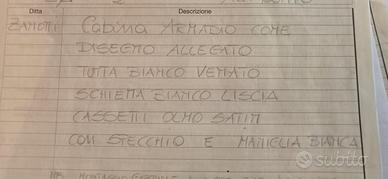 Ditta Descrizione
ZANOTTI CABINA ARMADIO COME
DISEGNO ALLEGATO
TUTTA BIANCO VENATO
SCHIENA BIANCO LISCIA
CASSETTI OLMO SATIN
CON STECCHIO E MANIGLIA BIANCA
subito